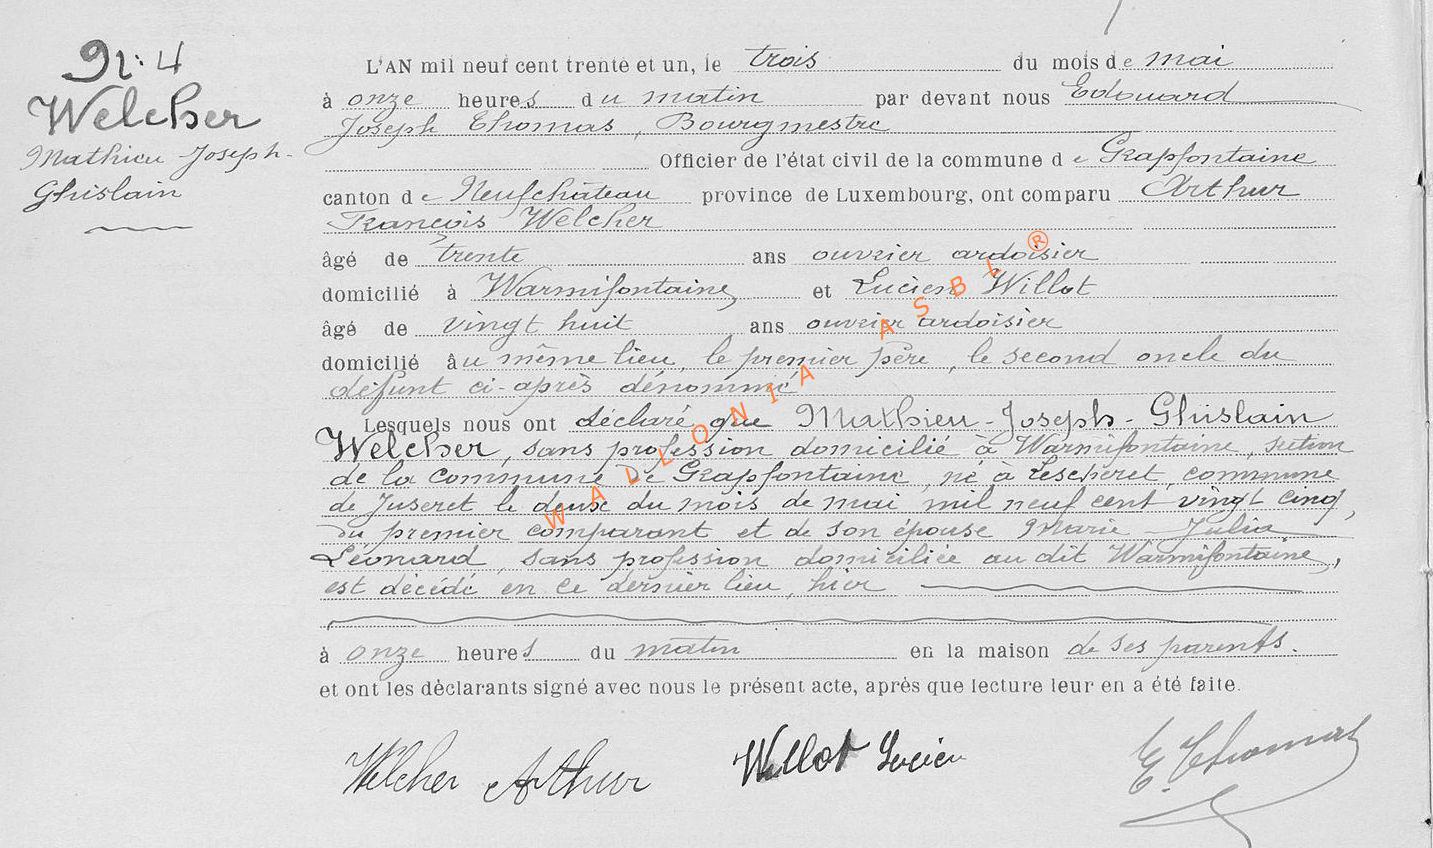 N°: 4
Welcher
Mathieu Joseph-
Ghislain
L'AN mil neuf cent trente et un, le trois du mois de mai
à onze heures du matin par devant nous Edouard
Joseph Thomas, Bourgmestre
Officier de l'état civil de la commune de Grapfontaine
canton de Neufchâteau province de Luxembourg, ont comparu Arthur
François Welcher
âgé de trente ans ouvrier ardoisier
domicilié à Warmifontaine, et Lucien Willot
âgé de vingt huit ans ouvrier ardoisier
domicilié au même lieu, le premier père, le second oncle du
défunt ci-après dénommé
Lesquels nous ont déclaré que Mathieu-Joseph-Ghislain
Welcher, sans profession domicilié à Warmifontaine, section
de la commune de Grapfontaine, né à Lescheret, commune
de Juseret le deux du mois de mai mil neuf cent vingt cinq,
du premier comparant et de son épouse Marie Julia
Léonard, sans profession domiciliée au dit Warmifontaine,
est décédé en ce dernier lieu, hier
à onze heures du matin en la maison de ses parents.
et ont les déclarants signé avec nous le présent acte, après que lecture leur en a été faite.
Welcher Arthur Willot Lucien E. Thomas
WALLONIA ASBL ®